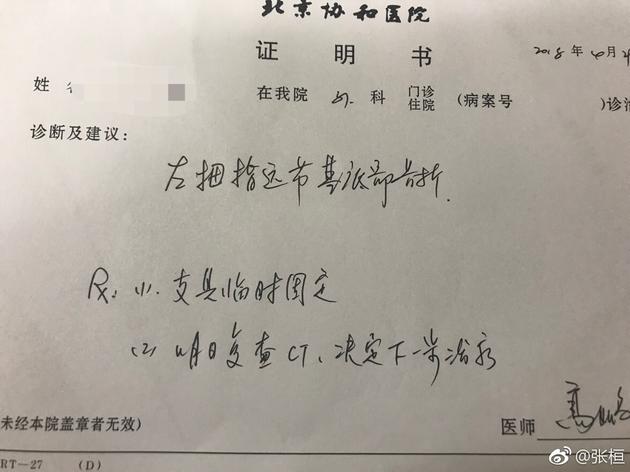 北京协和医院
证明书
2018年4月2
姓 在我院 科 门诊 住院 (病案号 )诊治
诊断及建议:
左拇指远节基底部骨折.
Rx: (1). 支具临时固定
(2) 明日复查CT、决定下一步治疗
未经本院盖章者无效)
医师 高
RT-27 (D)
@张桓